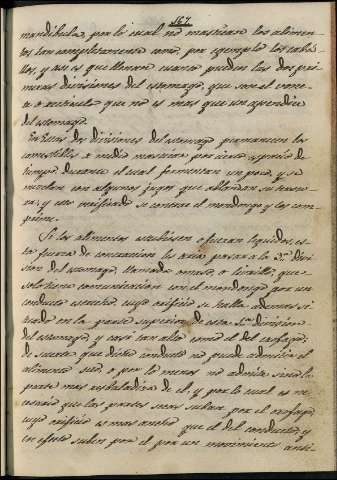 167.
mandibula, por lo cual no mascáran los alimen-
tos tan completamente como, por egemplo los caba-
llos, y asi es que llenan cuanto pueden las dos pri-
meras divisiones del estomago, que son el
o reticulo que no es mas que un apendice
del estomago.
En estas dos divisiones del estomago permanecen los
comestibles á medio mascar por cierto espacio de
tiempo durante el cual fomentan un poco, y se
mezclan con algunos jugos que ablandan su
y esto verificado se contrae el mondongo y los com-
prime.
Si los alimentos estubiesen ó fueran liquidos, es-
ta fuerza de contraccion les aria pasar á la 3.ª Divi-
sion del estomago, llamada omaso, ó librillo, que
solo tiene comunicacion con el mondongo por un
conducto estrecho cuyo orificio se halla ademas si-
tuado en la parte superior de esta 1.ª division
del estomago y casi tan alto como el del esofago;
de suerte que dicho conducto no puede admitir el
alimento sino, ó por lo menos no admite sino la
parte mas resbaladiza de él, y por lo cual es ne-
cesario que las partes secas suban por el esofago,
cuyo orificio es mas ancho que el del conducto, y
en efecto suben por el por un movimiento anti-